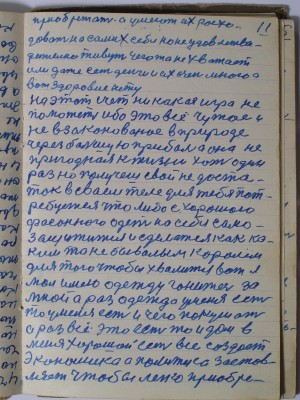 11
приобретать а умеют их расхо-
доват на самих себя но неудовлетва-
рително живут чего та не хватает
или даже ест денги и их очен много а
вот здоровие нету
на этот счет никакая игра не
поможет ибо это всё чужое и
не взаконованое в природе
через бан прибал а она не
пригодная к жизни хоть один
раз но получеш свой не доста-
ток в своем теле для тебя пот-
ребуется что либо с хорошого
фасонного одет на себя само-
защитится и сделатся как ка-
ким та небывалым королём
для того чтобы хвалится вот я
мол имею одежду гонится за
мной а раз одежда у меня ест
то у меня ест и чего покушат
а раз всё это ест то и дом в
меня хороший ест всё создаёт
экономика а политика застав-
ляет чтобы легко приобре-